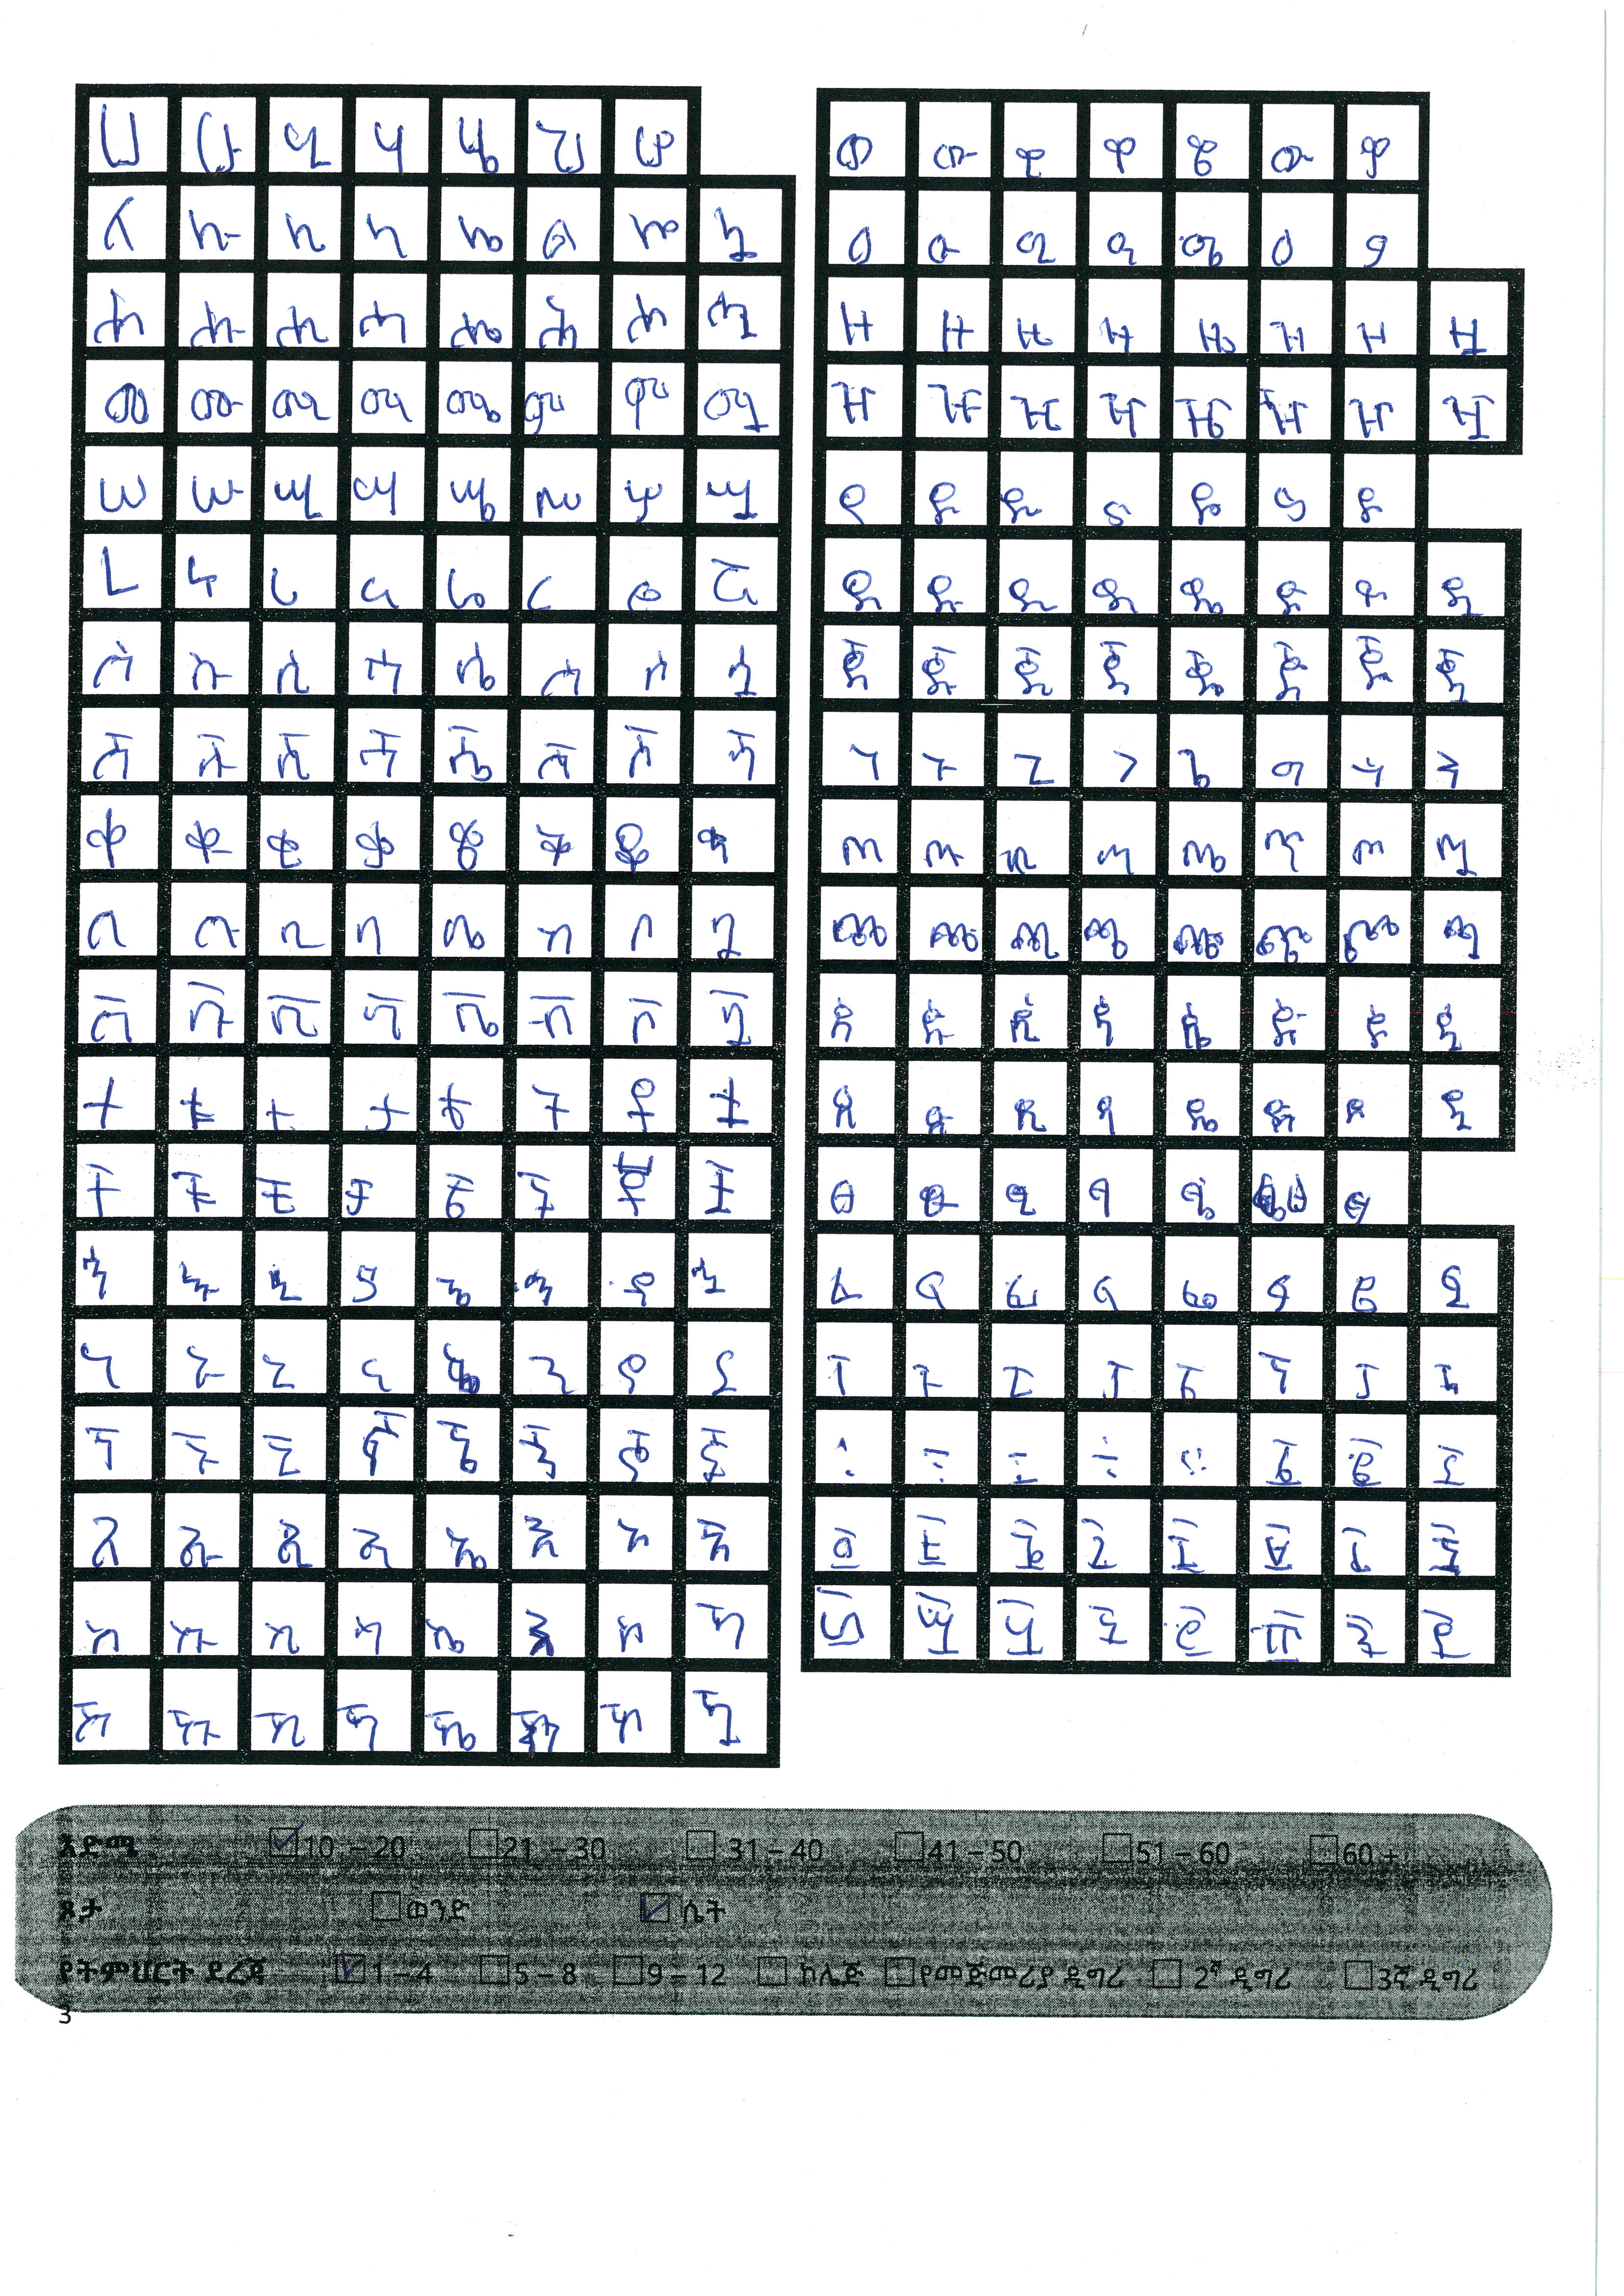 ሀ ሁ ሂ ሃ ሄ ህ ሆ
ለ ሉ ሊ ላ ሌ ል ሎ ሏ
ሐ ሑ ሒ ሓ ሔ ሕ ሖ ሗ
መ ሙ ሚ ማ ሜ ም ሞ ሟ
ሠ ሡ ሢ ሣ ሤ ሥ ሦ ሧ
ረ ሩ ሪ ራ ሬ ር ሮ ሯ
ሰ ሱ ሲ ሳ ሴ ስ ሶ ሷ
ሸ ሹ ሺ ሻ ሼ ሽ ሾ ሿ
ቀ ቁ ቂ ቃ ቄ ቅ ቆ ቋ
በ ቡ ቢ ባ ቤ ብ ቦ ቧ
ቨ ቩ ቪ ቫ ቬ ቭ ቮ ቯ
ተ ቱ ቲ ታ ቴ ት ቶ ቷ
ቸ ቹ ቺ ቻ ቼ ች ቾ ቿ
ኅ ኁ ኂ ኃ ኄ ኆ ኋ
ነ ኑ ኒ ና ኔ ን ኖ ኗ
ኘ ኙ ኚ ኛ ኜ ኝ ኞ ኟ
አ ኡ ኢ ኣ ኤ እ ኦ ኧ
ከ ኩ ኪ ካ ኬ ክ ኮ
ኸ ኹ ኺ ኻ ኼ ኽ ኾ ዃ
ወ ዉ ዊ ዋ ዌ ው ዎ
ዐ ዑ ዒ ዓ ዔ ዕ ዖ
ዘ ዙ ዚ ዛ ዜ ዝ ዞ ዟ
ዠ ዡ ዢ ዣ ዤ ዥ ዦ ዧ
የ ዩ ዪ ያ ዬ ይ ዮ
ደ ዱ ዲ ዳ ዴ ድ ዶ ዷ
ጀ ጁ ጂ ጃ ጄ ጅ ጆ ጇ
ገ ጉ ጊ ጋ ጌ ግ ጎ ጓ
ጠ ጡ ጢ ጣ ጤ ጥ ጦ ጧ
ጨ ጩ ጪ ጫ ጬ ጭ ጮ ጯ
ጰ ጱ ጲ ጳ ጴ ጵ ጶ ጷ
ጸ ጹ ጺ ጻ ጼ ጽ ጾ ጿ
ፀ ፁ ፂ ፃ ፄ ፆ
ፈ ፉ ፊ ፋ ፌ ፍ ፎ ፏ
ፐ ፑ ፒ ፓ ፔ ፕ ፖ ፗ
፡ ፤ ፥ ፩ ፪ ፫
፬ ፭ ፮ ፯ ፰ ፱ ፲
፳ ፴ ፵ ፶ ፷ ፸ ፹ ፺
እድሜ 10 – 20 21 – 30 31 – 40 41 – 50 51 – 60 60 +
ጾታ ወንድ ሴት
የትምህርት ደረጃ 1 – 4 5 – 8 9 – 12 ኮሌጅ የመጀመሪያ ዲግሪ 2ኛ ዲግሪ 3ኛ ዲግሪ
3